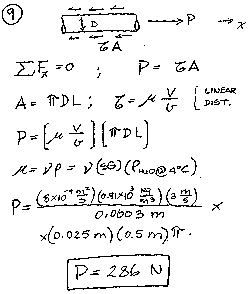 9
D → P → x
τA
ΣFx = 0 ; P = τA
A = πDL ; τ = μ V/b { LINEAR DIST.
P = [μ V/b] [πDL]
μ = νρ = ν (SG)(ρH2O@4°C)
P = (8×10⁻⁴ m²/s)(0.91×10³ kg/m³)(3 m/s) / 0.0003 m ×
×(0.025 m)(0.5 m)π.
P = 286 N